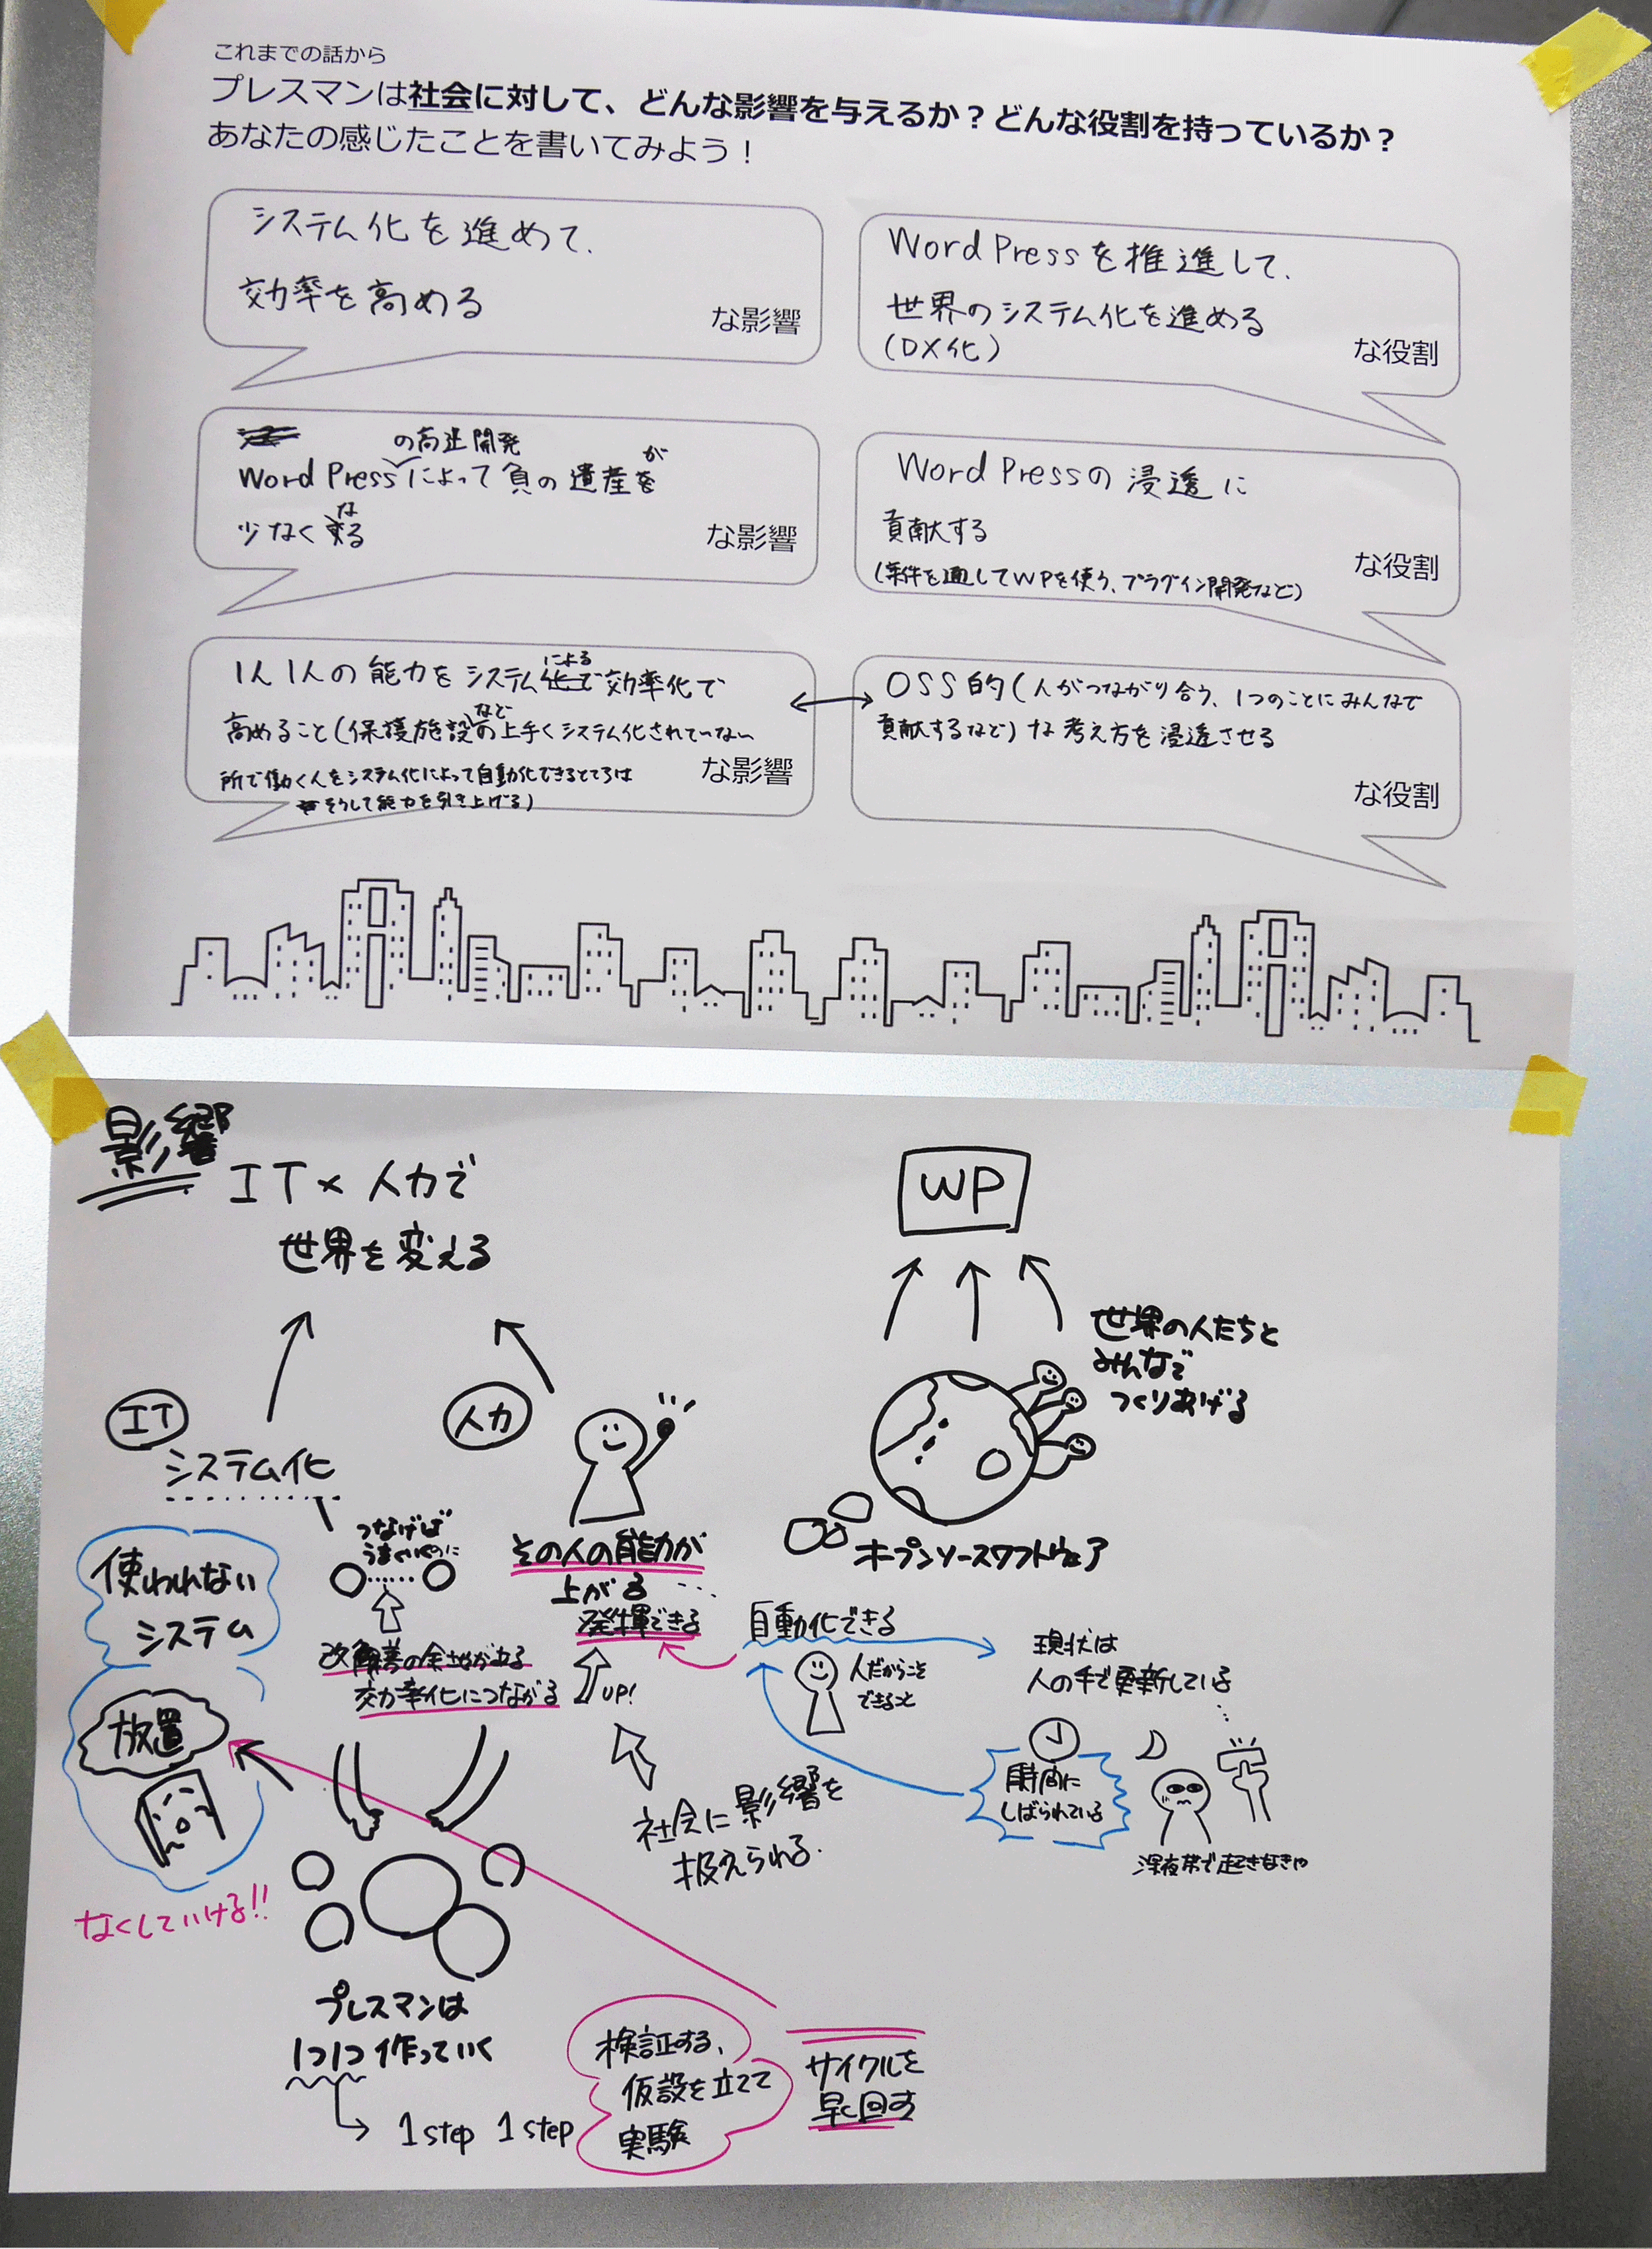 これまでの話から
プレスマンは社会に対して、どんな影響を与えるか？どんな役割を持っているか？
あなたの感じたことを書いてみよう！
システム化を進めて、
効率を高める
な影響
WordPressを推進して、
世界のシステム化を進める
(DX化)
な役割
の高速開発
WordPressによって負の遺産が
少なくなる
な影響
WordPressの浸透に
貢献する
(案件を通してWPを使う、プラグイン開発など)
な役割
1人1人の能力をシステムによる効率化で
高めること(保護施設など上手くシステム化されていない
所で働く人をシステム化によって自動化できるところは
そうして能力を引き上げる)
な影響
OSS的(人がつながり合う、1つのことにみんなで
貢献するなど)な考え方を浸透させる
な役割
影響
IT×人力で
世界を変える
WP
世界の人たちと
みんなで
つくりあげる
オープンソースソフトウェア
IT
システム化
人力
つなげば
うまくいくのに
その人の能力が
上がる
発揮できる
UP!
使われない
システム
改善の余地がある
効率化につながる
自動化できる
人だからこそ
できること
現状は
人の手で更新している
放置
なくしていける!!
社会に影響を
与えられる.
時間に
しばられている
深夜帯で起きなきゃ
プレスマンは
1つ1つ作っていく
1step 1step
検証する、
仮設を立てて
実験
サイクルを
早く回す